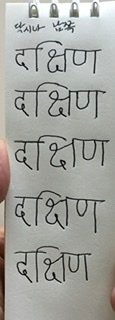 닥시나 남쪽
दक्षिण
दक्षिण
दक्षिण
दक्षिण
दक्षिण